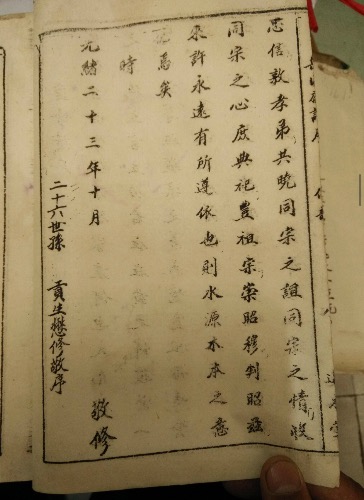 忠信敦孝弟共曉同宗之誼同宗之情收
同宗之心庶典祀豊祖宗崇昭穆判昭茲
來許永遠有所遵依也則水源木本之意
爲矣
時
光緒二十三年十月
二十六世孫 貢生懋修敬序
敬修